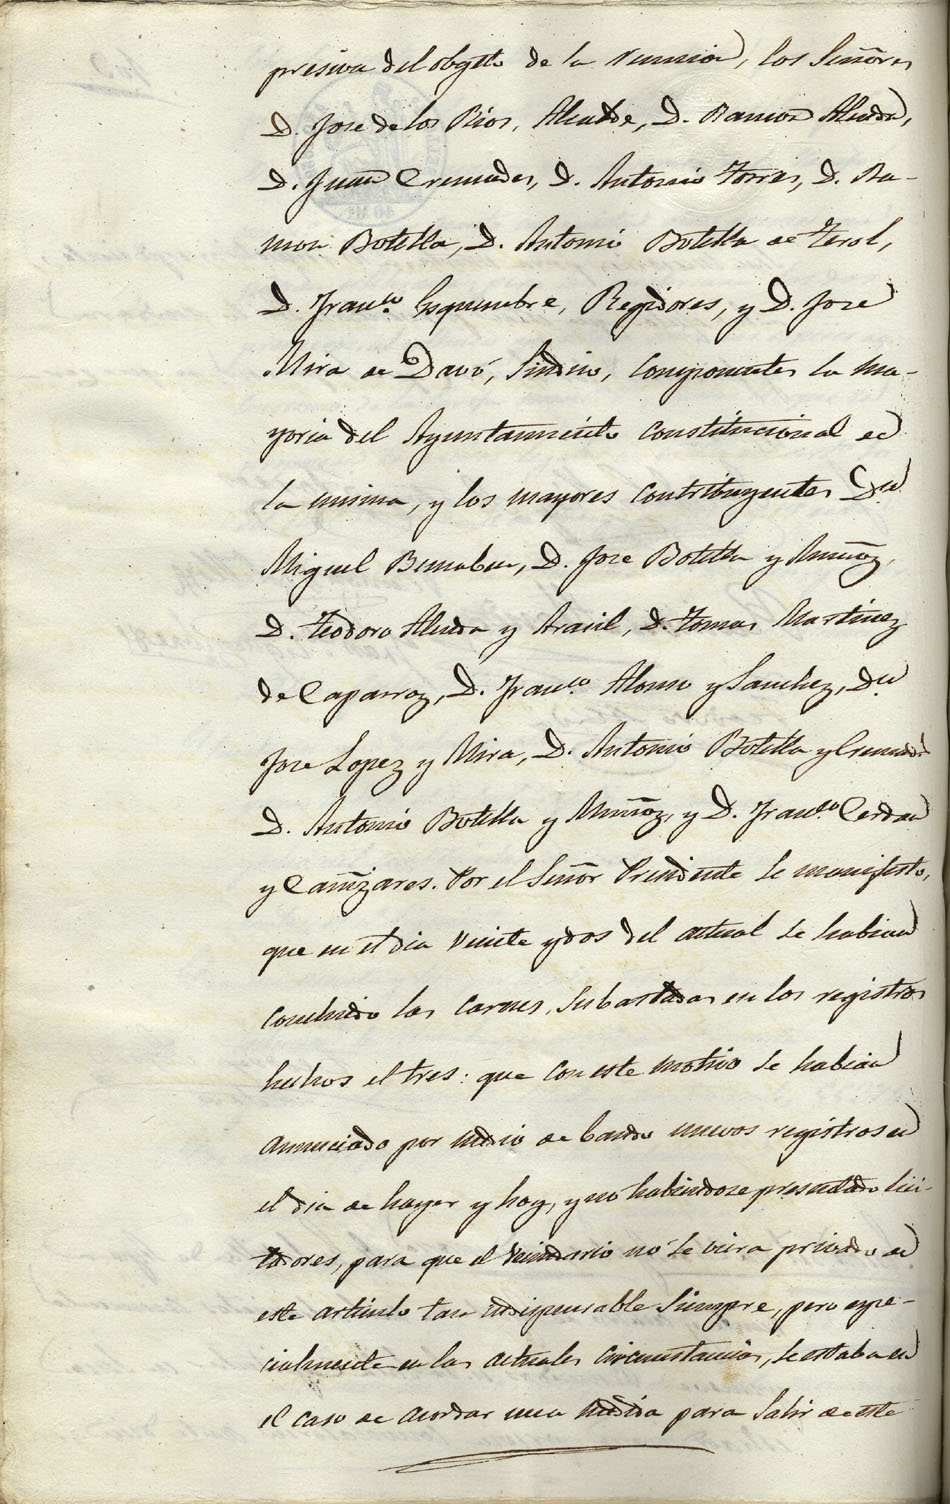 presiva del obgeto de la reunion, los Señores
D. Jose de los Rios, Alcalde, D. Ramon Alenda,
D. Juan Cremades, D. Antonio Torres, D. Ra-
mon Botella, D. Antonio Botella de Terol,
D. Franco. Esquembre, Regidores, y D. Jose
Mira de Davó, Sindico, componentes la ma-
yoria del Ayuntamiento Constitucional de
la misma, y los mayores contribuyentes Dn
Miguel Bernabeu, D. Jose Botella y Muñoz,
D. Teodoro Alenda y Aracil, D. Tomas Martinez
de Caparroz, D. Franco. Alonso y Sanchez, Dn
Jose Lopez y Mira, D. Antonio Botella y Cremades
D. Antonio Botella y Muñoz, y D. Franco. Cerdan
y Cañizares. Por el Señor Presidente se manifesto,
que en el dia veinte y dos del actual se habian
concluido las carnes subastadas en los registros
hechos el tres: que con este motivo se habian
anunciado por medio de bando nuevos registros en
el dia de hayer y hoy, y no habiendose presentado lici-
tadores, para que el vecindario no se viera privado de
este articulo tan indispensable siempre, pero espe-
cialmente en las actuales circunstancias, se estaba en
el caso de acordar una medida para salir de este